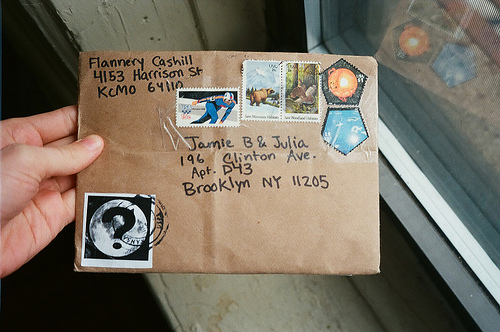 Flannery Cashill
4153 Harrison St
KCMO 64110
Jamie B & Julia
196 Clinton Ave.
Apt. D43
Brooklyn NY 11205
?